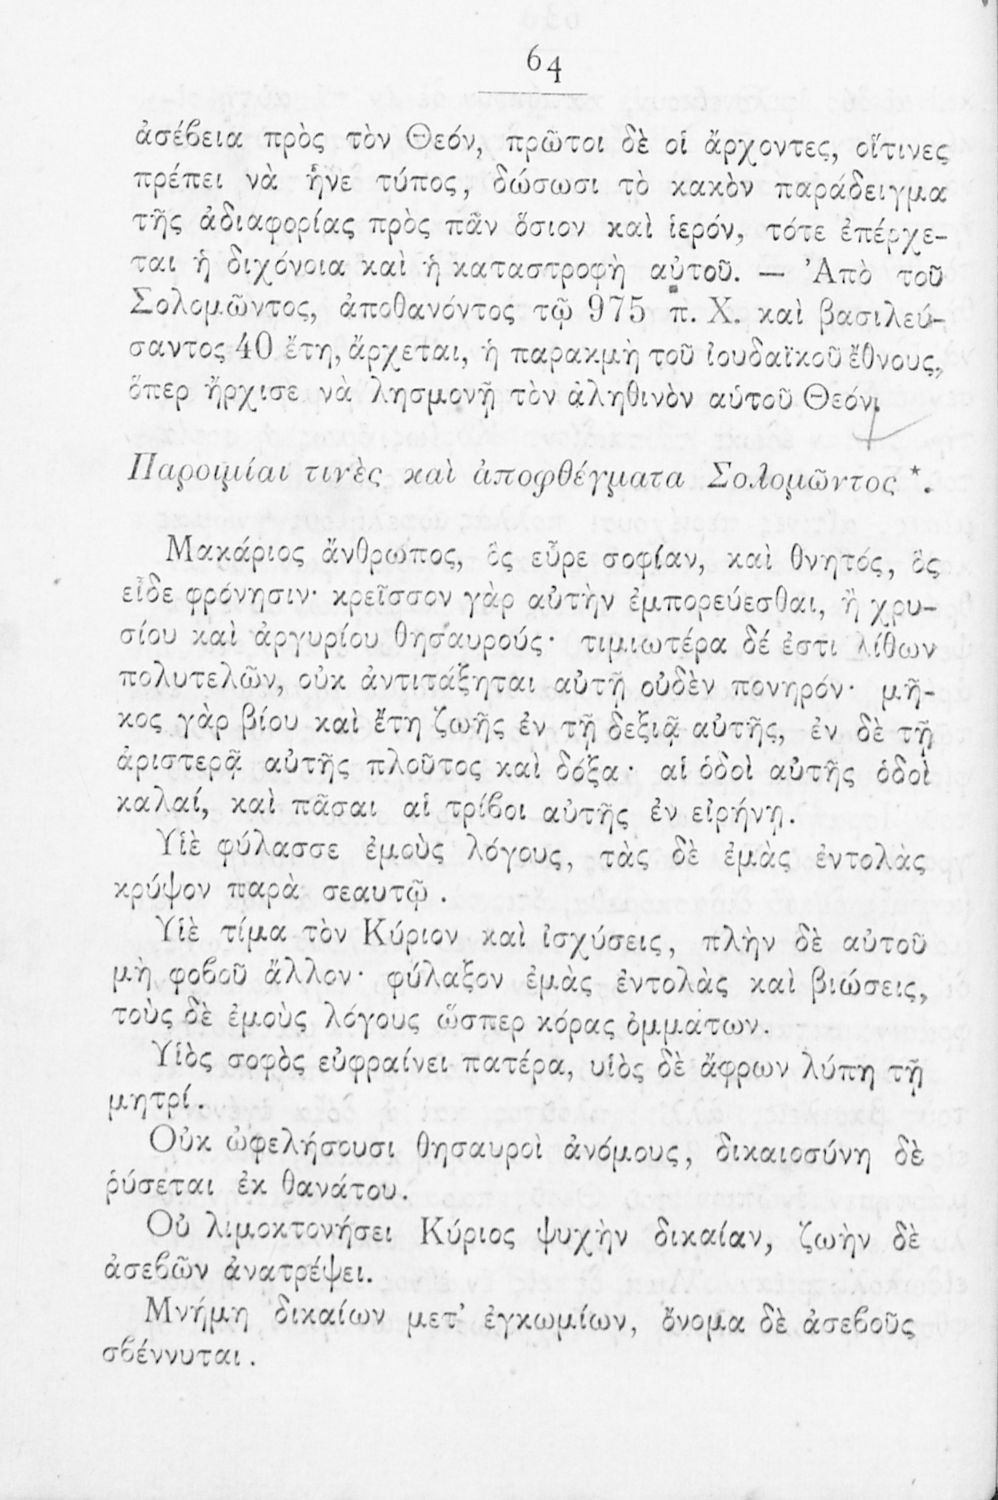 64
ἀσέβεια πρὸς τὸν Θεόν, πρῶτοι δὲ οἱ ἄρχοντες, οἵτινες
πρέπει νὰ ἦνε τύπος, δώσωσι τὸ κακὸν παράδειγμα
τῆς ἀδιαφορίας πρὸς πᾶν ὅσιον καὶ ἱερόν, τότε ἐπέρχε-
ται ἡ διχόνοια καὶ ἡ καταστροφὴ αὐτοῦ. — Ἀπὸ τοῦ
Σολομῶντος, ἀποθανόντος τῷ 975 π. Χ. καὶ βασιλεύ-
σαντος 40 ἔτη, ἄρχεται, ἡ παρακμὴ τοῦ ἰουδαϊκοῦ ἔθνους,
ὅπερ ἤρχισε νὰ λησμονῇ τὸν ἀληθινὸν αὑτοῦ Θεόν.
Παροιμίαι τινὲς καὶ ἀποφθέγματα Σολομῶντος *.
Μακάριος ἄνθρωπος, ὃς εὗρε σοφίαν, καὶ θνητός, ὃς
εἶδε φρόνησιν· κρεῖσσον γὰρ αὐτὴν ἐμπορεύεσθαι, ἢ χρυ-
σίου καὶ ἀργυρίου θησαυρούς· τιμιωτέρα δέ ἐστι λίθων
πολυτελῶν, οὐκ ἀντιτάξηται αὐτῇ οὐδὲν πονηρόν· μῆ-
κος γὰρ βίου καὶ ἔτη ζωῆς ἐν τῇ δεξιᾷ αὐτῆς, ἐν δὲ τῇ
ἀριστερᾷ αὐτῆς πλοῦτος καὶ δόξα· αἱ ὁδοὶ αὐτῆς ὁδοὶ
καλαί, καὶ πᾶσαι αἱ τρίβοι αὐτῆς ἐν εἰρήνῃ.
Υἱὲ φύλασσε ἐμοὺς λόγους, τὰς δὲ ἐμὰς ἐντολὰς
κρύψον παρὰ σεαυτῷ.
Υἱὲ τίμα τὸν Κύριον καὶ ἰσχύσεις, πλὴν δὲ αὐτοῦ
μὴ φοβοῦ ἄλλον· φύλαξον ἐμὰς ἐντολὰς καὶ βιώσεις,
τοὺς δὲ ἐμοὺς λόγους ὥσπερ κόρας ὀμμάτων.
Υἱὸς σοφὸς εὐφραίνει πατέρα, υἱὸς δὲ ἄφρων λύπη τῇ
μητρί.
Οὐκ ὠφελήσουσι θησαυροὶ ἀνόμους, δικαιοσύνη δὲ
ῥύσεται ἐκ θανάτου.
Οὐ λιμοκτονήσει Κύριος ψυχὴν δικαίαν, ζωὴν δὲ
ἀσεβῶν ἀνατρέψει.
Μνήμη δικαίων μετ' ἐγκωμίων, ὄνομα δὲ ἀσεβοῦς
σβέννυται.